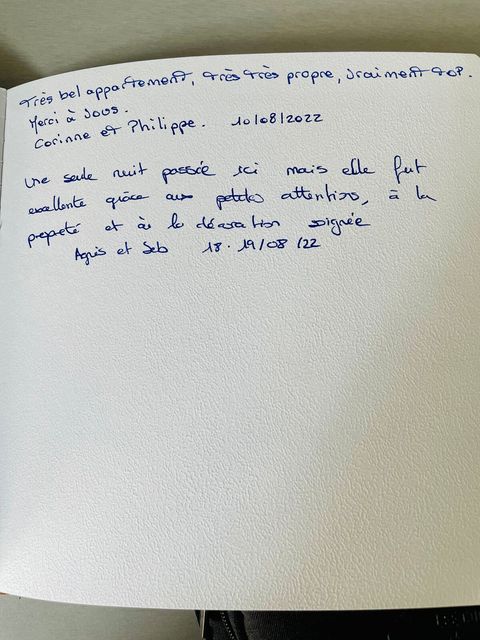 Très bel appartement, très très propre, vraiment top.
Merci à vous.
Corinne et Philippe. 10/08/2022
Une seule nuit passée ici mais elle fut
excellente grâce aux petites attentions, à la
propreté et à la décoration soignée
Agnès et Seb 18.19/08/22